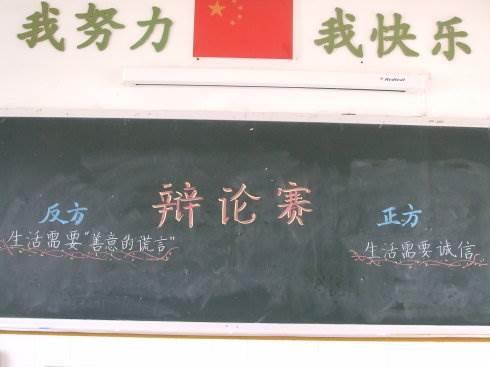 我努力 我快乐
Redleaf
辩论赛
反方 正方
生活需要“善意的谎言” 生活需要诚信。